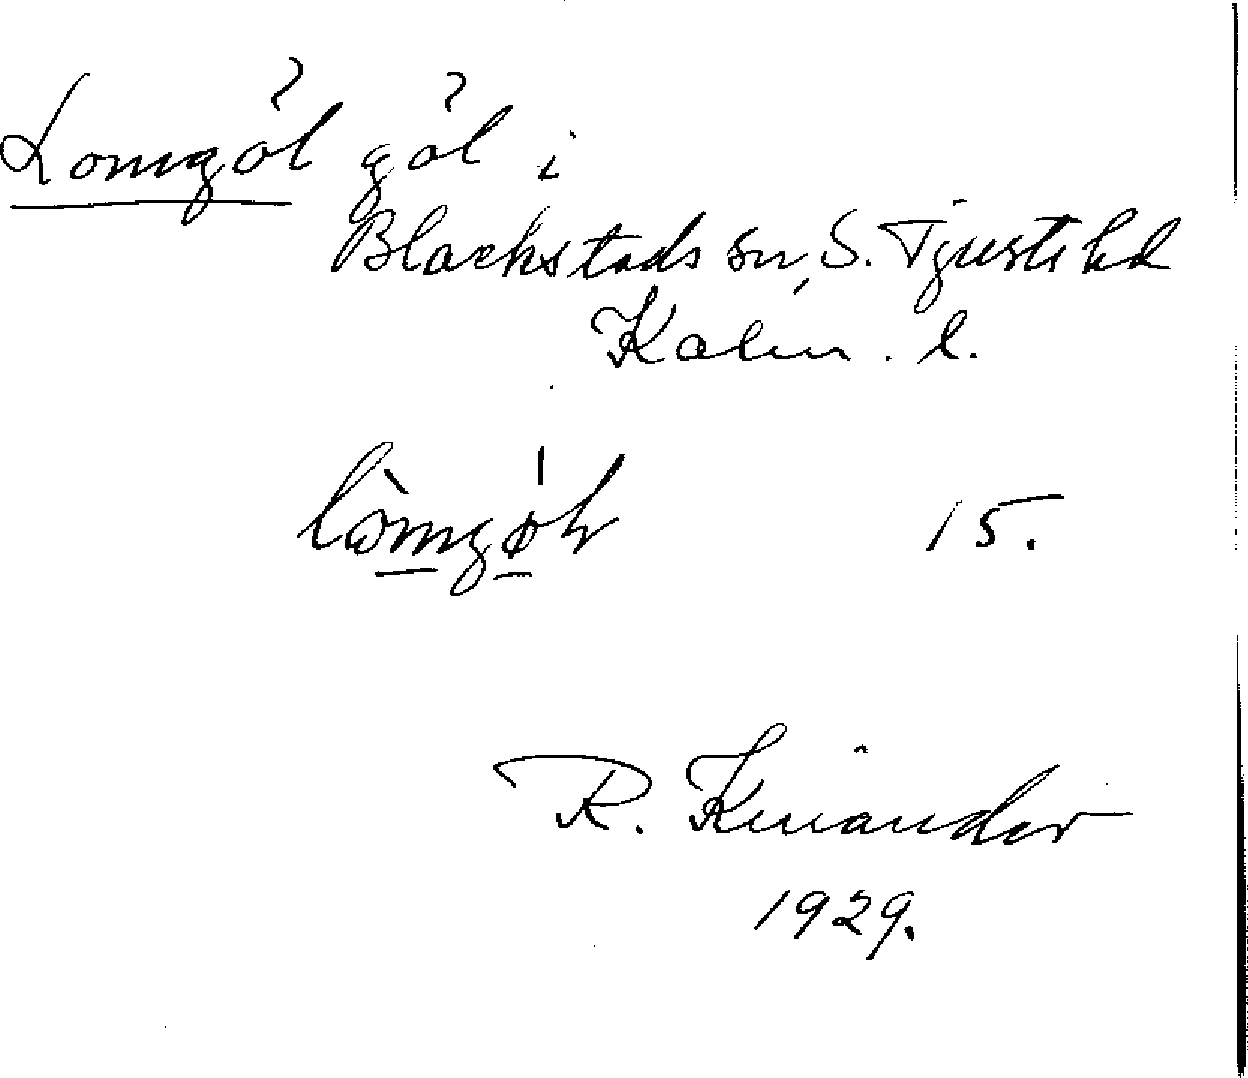 Lomgöl göl i
Blackstads sn, S. Tjusts hd
Kalm. l.
15.
R. Kinander
1929.